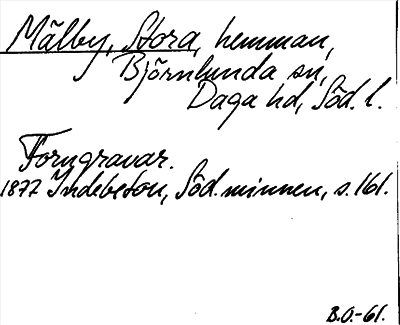 Mälby, Stora, hemman,
Björnlunda sn,
Daga hd, Söd. l.
Forngravar.
1877 Indebetou, Söd. minnen, s. 161.
B.O.-61.